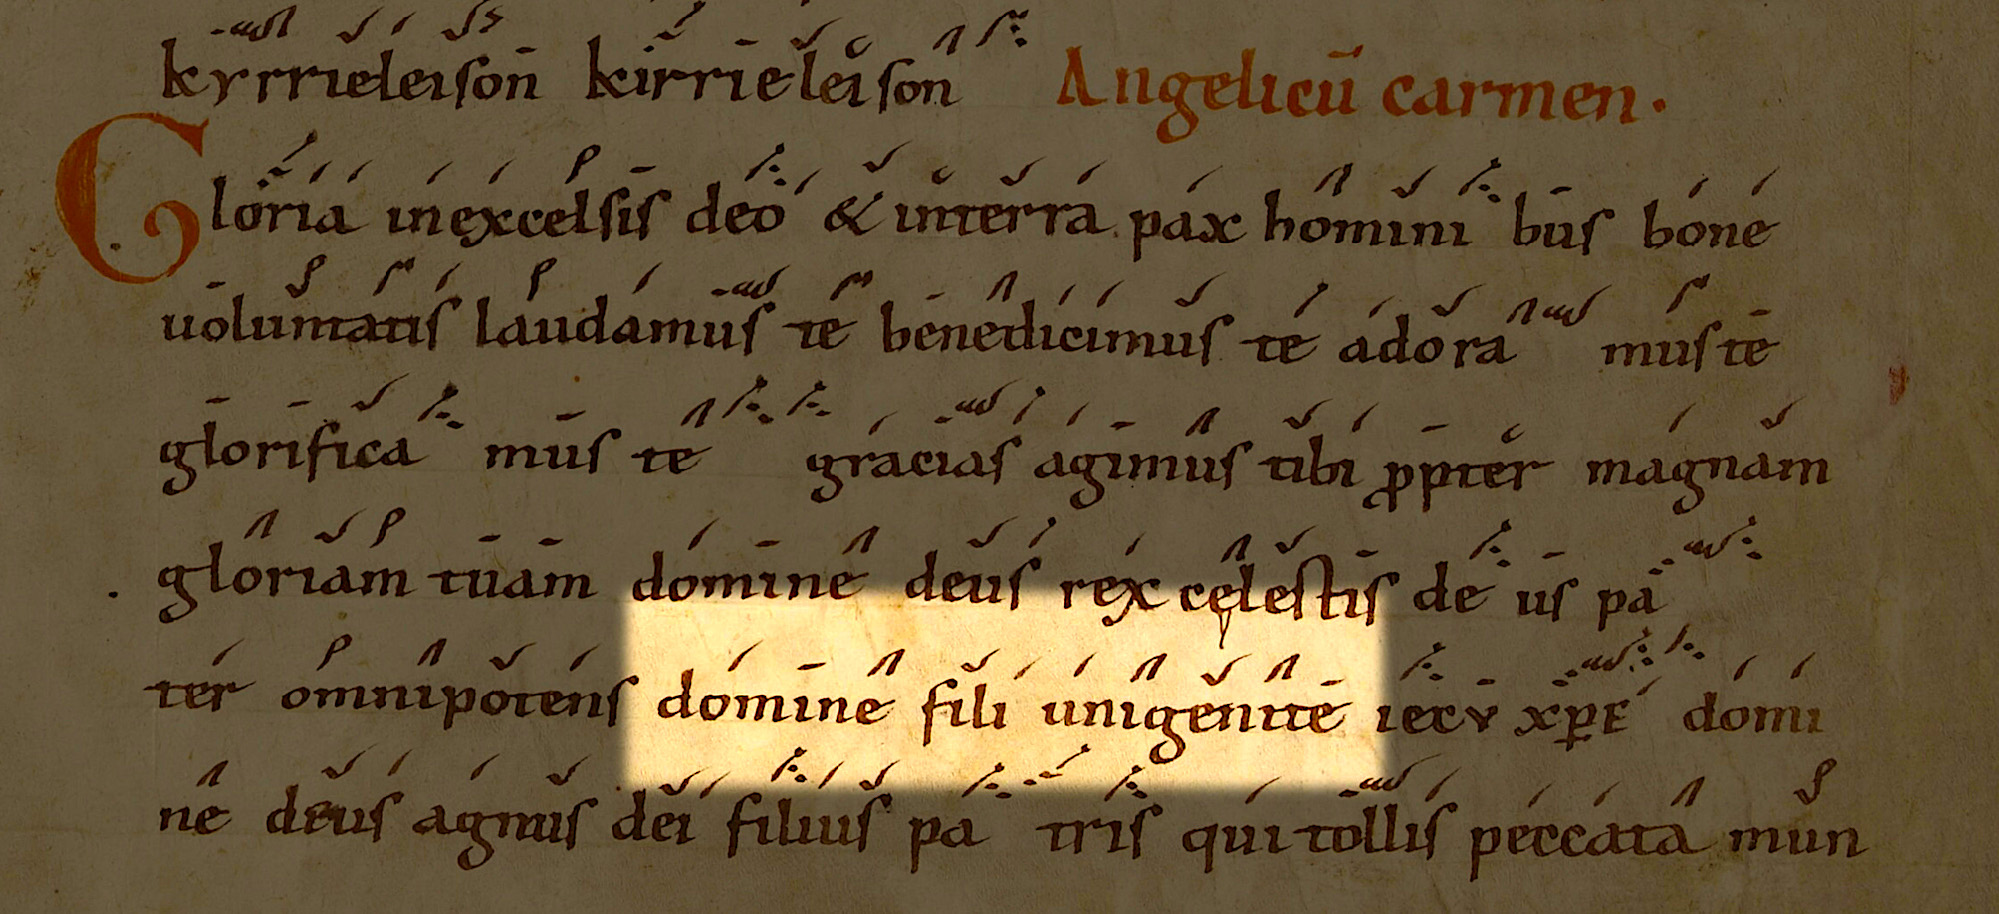 kyrrieleison̄ kirrieleison Angelicū carmen.
Gloria in excelsis deo & in terra pax homini bus bone
uoluntatis laudamus te benedicimus te adora mus te
glorifica mus te gracias agimus tibi propter magnam
gloriam tuam domine deus rex cęlestis de us pa
ter omnipotens domine fili unigenite iecv xpe domi
ne deus agnus dei filius pa tris qui tollis peccata mun